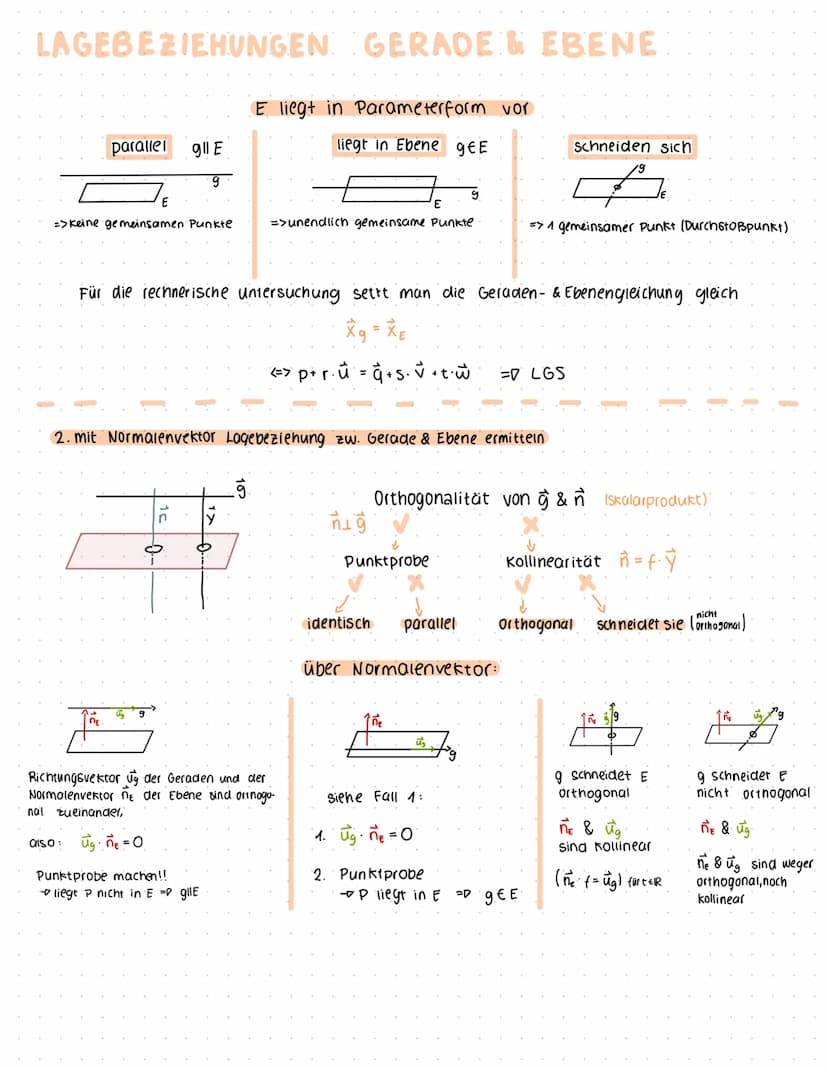 LAGEBEZIEHUNGEN GERADE & EBENE
E liegt in Parameterform vor
parallel g||E
g
E
=>keine gemeinsamen Punkte
liegt in Ebene g∈E
g
E
=>unendlich gemeinsame Punkte
schneiden sich
g
E
=> 1 gemeinsamer Punkt (Durchstoßpunkt)
Für die rechnerische Untersuchung setzt man die Geraden- & Ebenengleichung gleich
x⃗g = x⃗E
<=> p+ r·u⃗ = q⃗+s·v⃗ +t·w⃗ => LGS
2. mit Normalenvektor Lagebeziehung zw. Gerade & Ebene ermitteln
g⃗
n⃗
y⃗
Orthogonalität von g⃗ & n⃗ (Skalarprodukt)
n⃗⊥g⃗ ✓ ✗
Punktprobe Kollinearität n⃗ = f·y⃗
✓ ✗ ✓ ✗
identisch parallel orthogonal schneidet sie (nicht orthogonal)
über Normalenvektor:
n⃗E u⃗g g
Richtungsvektor u⃗g der Geraden und der
Normalenvektor n⃗E der Ebene sind orthogo-
nal zueinander,
also: u⃗g · n⃗E = 0
Punktprobe machen!!
→ liegt P nicht in E => g||E
n⃗E
u⃗g
g
siehe Fall 1:
1. u⃗g · n⃗E = 0
2. Punktprobe
→ P liegt in E => g∈E
n⃗E g
g schneidet E
orthogonal
n⃗E & u⃗g
sind kollinear
(n⃗E · t = u⃗g) für t∈ℝ
n⃗E u⃗g g
g schneidet E
nicht orthogonal
n⃗E & u⃗g
n⃗E & u⃗g sind weger
orthogonal, noch
kollinear